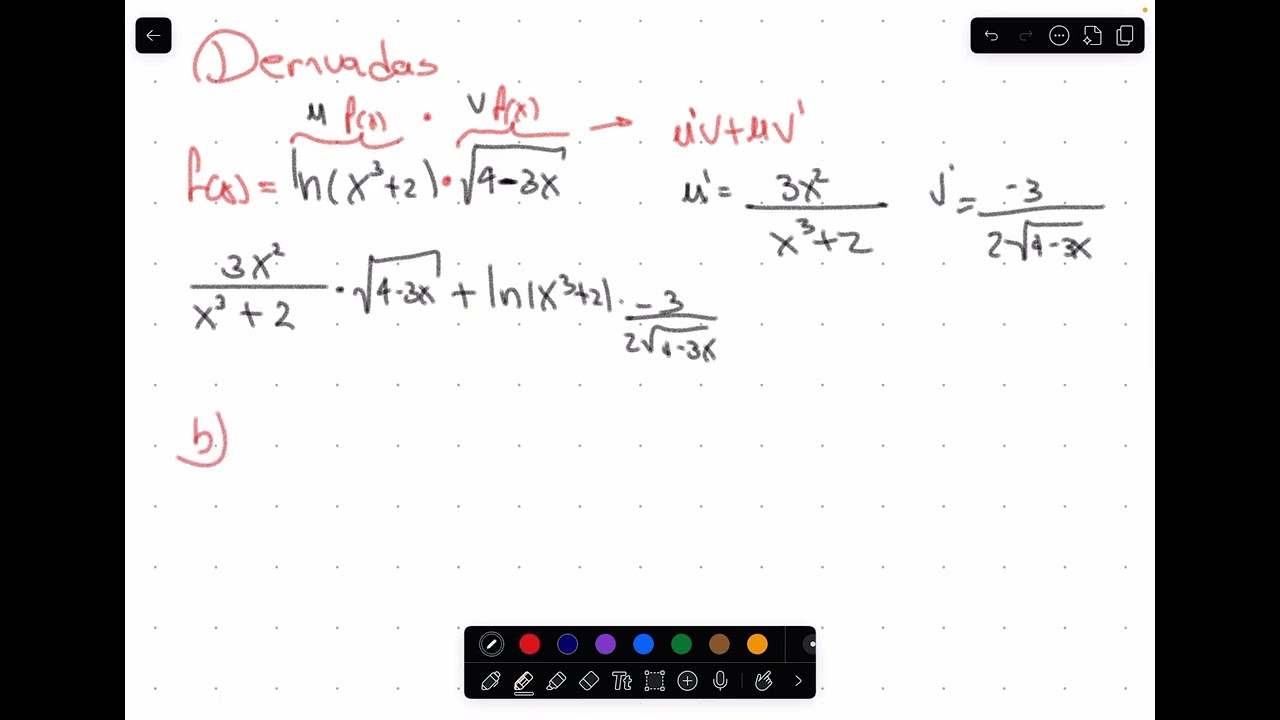 Derivadas
u f(x) · v f(x) → u'v+uv'
f(x) = ln(x³+2) · √(4-3x)
u' = 3x² / (x³+2)
v' = -3 / (2√(4-3x))
3x² / (x³+2) · √(4-3x) + ln(x³+2) · -3 / (2√(4-3x))
b)
Tt